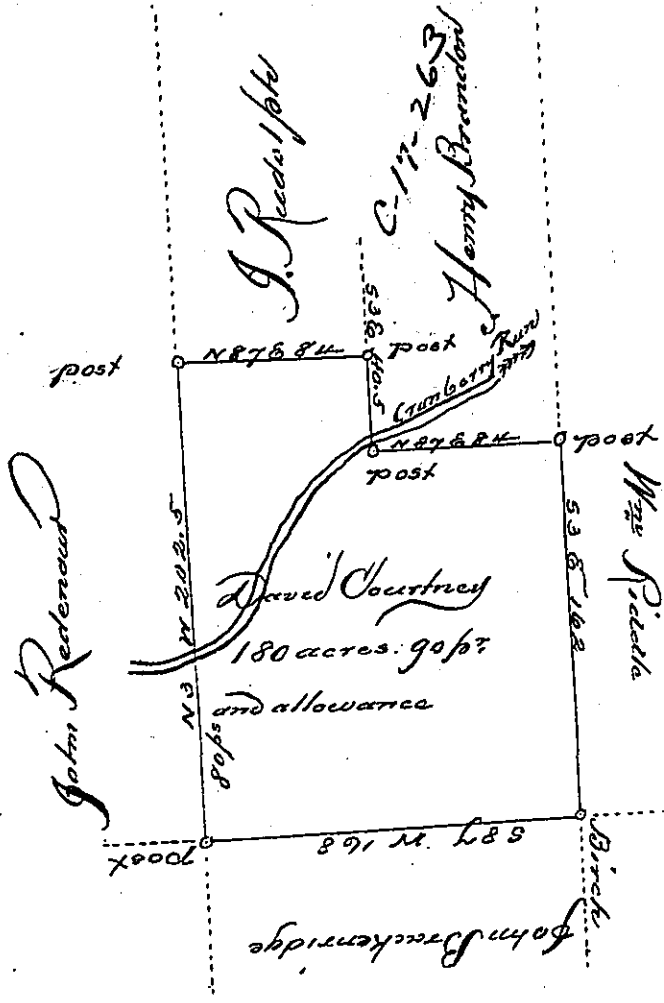 J. Rudolph
C-17-263
Henry Brandon
post
N 87 E 84
post
S 3 E 40.5
Cranberry Run
N 87 E 84
post
post
John Redenaur
N 3 W 202.5
80 ps
David Courtney
180 acres. 90 pr
and allowance
S 3 E 162
Wm Riddle
post
S 87 W 168
Birch
John Brackenridge